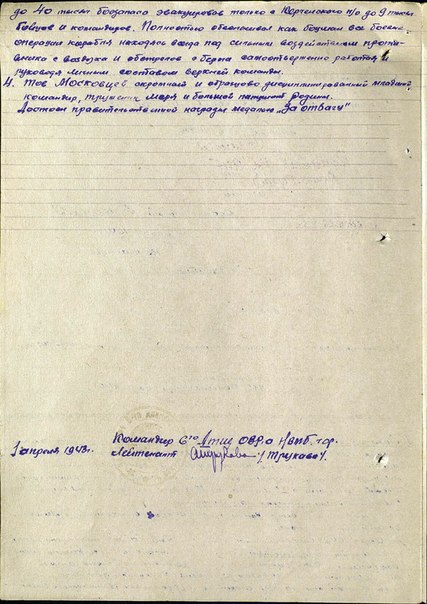 до 40 тысяч боезапаса эвакуировав только с Керченского п/о до 9 тысяч
бойцов и командиров. Полностью обеспечивал как боцман все боевые
операции корабля находясь всегда под сильным воздействием проти-
вника с воздуха и обстрелов с берега самоотверженно работая и
руководя личным составом верхней команды.
4. Тов Московцев скромный и образцово дисциплинированный младший
командир, труженик моря и большой патриот Родины.
Достоин правительственной награды медалью „За отвагу"
1 апреля 1943 г.
Командир 6го ОВРа
Лейтенант /Трукава/.